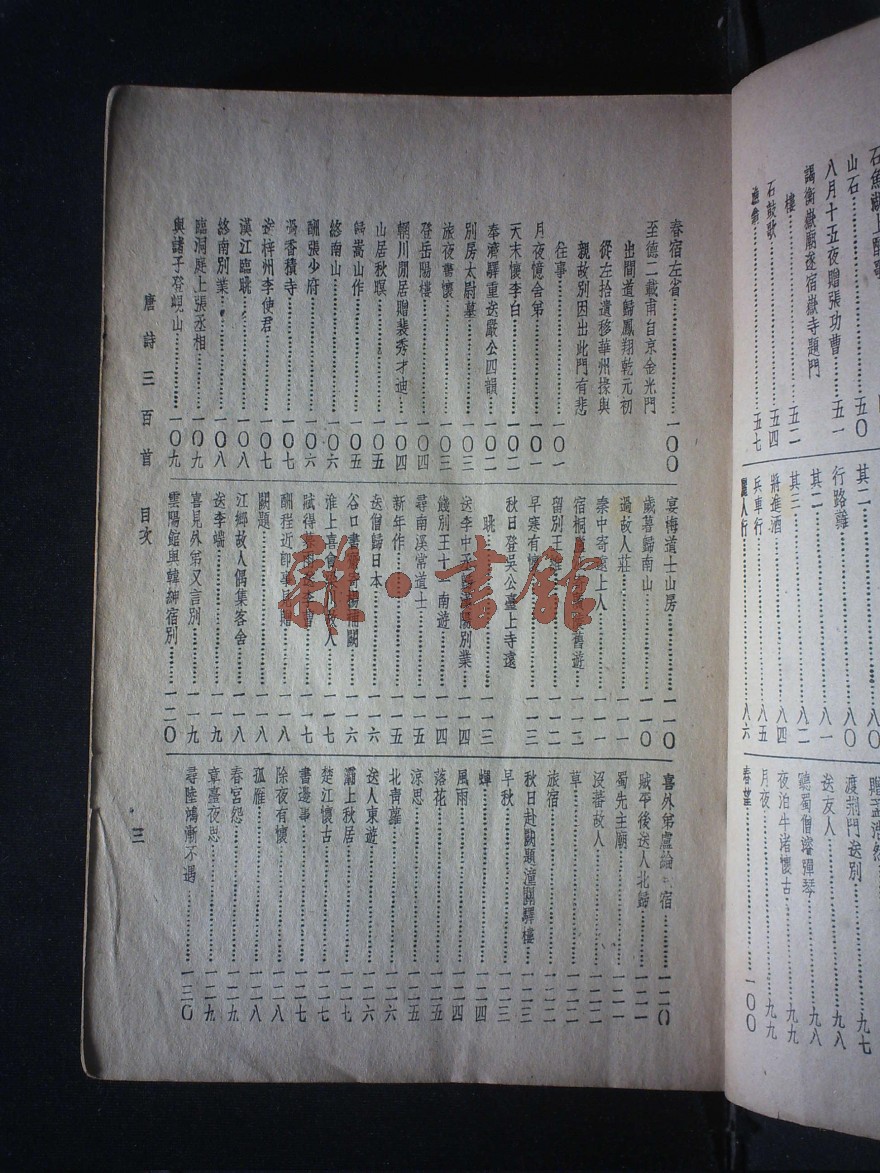 石魚湖上醉歌
山石……五〇
八月十五夜贈張功曹……五一
謁衡嶽廟遂宿嶽寺題門
樓……五二
石鼓歌……五四
漁翁……五七
其二……八〇
行路難……八〇
其二……八一
其三……八二
將進酒……八四
兵車行……八五
麗人行……八六
贈孟浩然……九七
渡荊門送別……九八
送友人……九八
聽蜀僧濬彈琴……九八
夜泊牛渚懷古……九九
月夜……九九
春望……一〇〇
春宿左省……一〇〇
至德二載甫自京金光門
出間道歸鳳翔乾元初
從左拾遺移華州掾與
親故別因出此門有悲
往事……一〇一
月夜憶舍弟……一〇一
天末懷李白……一〇二
奉濟驛重送嚴公四韻……一〇二
別房太尉墓……一〇三
旅夜書懷……一〇三
登岳陽樓……一〇四
輞川閒居贈裴秀才迪……一〇四
山居秋暝……一〇五
歸嵩山作……一〇五
終南山……一〇六
酬張少府……一〇六
過香積寺……一〇七
送梓州李使君……一〇七
漢江臨眺……一〇八
終南別業……一〇八
臨洞庭上張丞相……一〇九
與諸子登峴山……一〇九
宴梅道士山房……一一〇
歲暮歸南山……一一〇
過故人莊……一一一
秦中寄遠上人……一一一
宿桐廬江寄廣陵舊遊……一一二
留別王維
早寒有懷……一一三
秋日登吳公臺上寺遠
眺……一一三
送李中丞歸漢陽別業……一一四
餞別王十一南遊……一一四
尋南溪常道士……一一五
新年作……一一五
送僧歸日本……一一六
谷口書齋寄楊補闕……一一六
淮上喜會梁川故人……一一七
賦得暮雨送李曹……一一七
酬程近郎事見贈……一一八
闕題……一一八
江鄉故人偶集客舍……一一八
送李端……一一九
喜見外弟又言別……一一九
雲陽館與韓紳宿別……一二〇
喜外弟盧綸宿……一二〇
賊平後送人北歸……一二一
蜀先主廟……一二一
沒蕃故人……一二二
草……一二二
旅宿……一二二
秋日赴闕題潼關驛樓……一二三
早秋……一二三
蟬……一二四
風雨……一二四
落花……一二五
涼思……一二五
北青蘿……一二六
送人東遊……一二六
灞上秋居……一二七
楚江懷古……一二七
書邊事……一二七
除夜有懷……一二八
孤雁……一二八
春宮怨……一二九
章臺夜思……一二九
尋陸鴻漸不遇……一三〇
唐詩三百首 目次
三
雜·書館